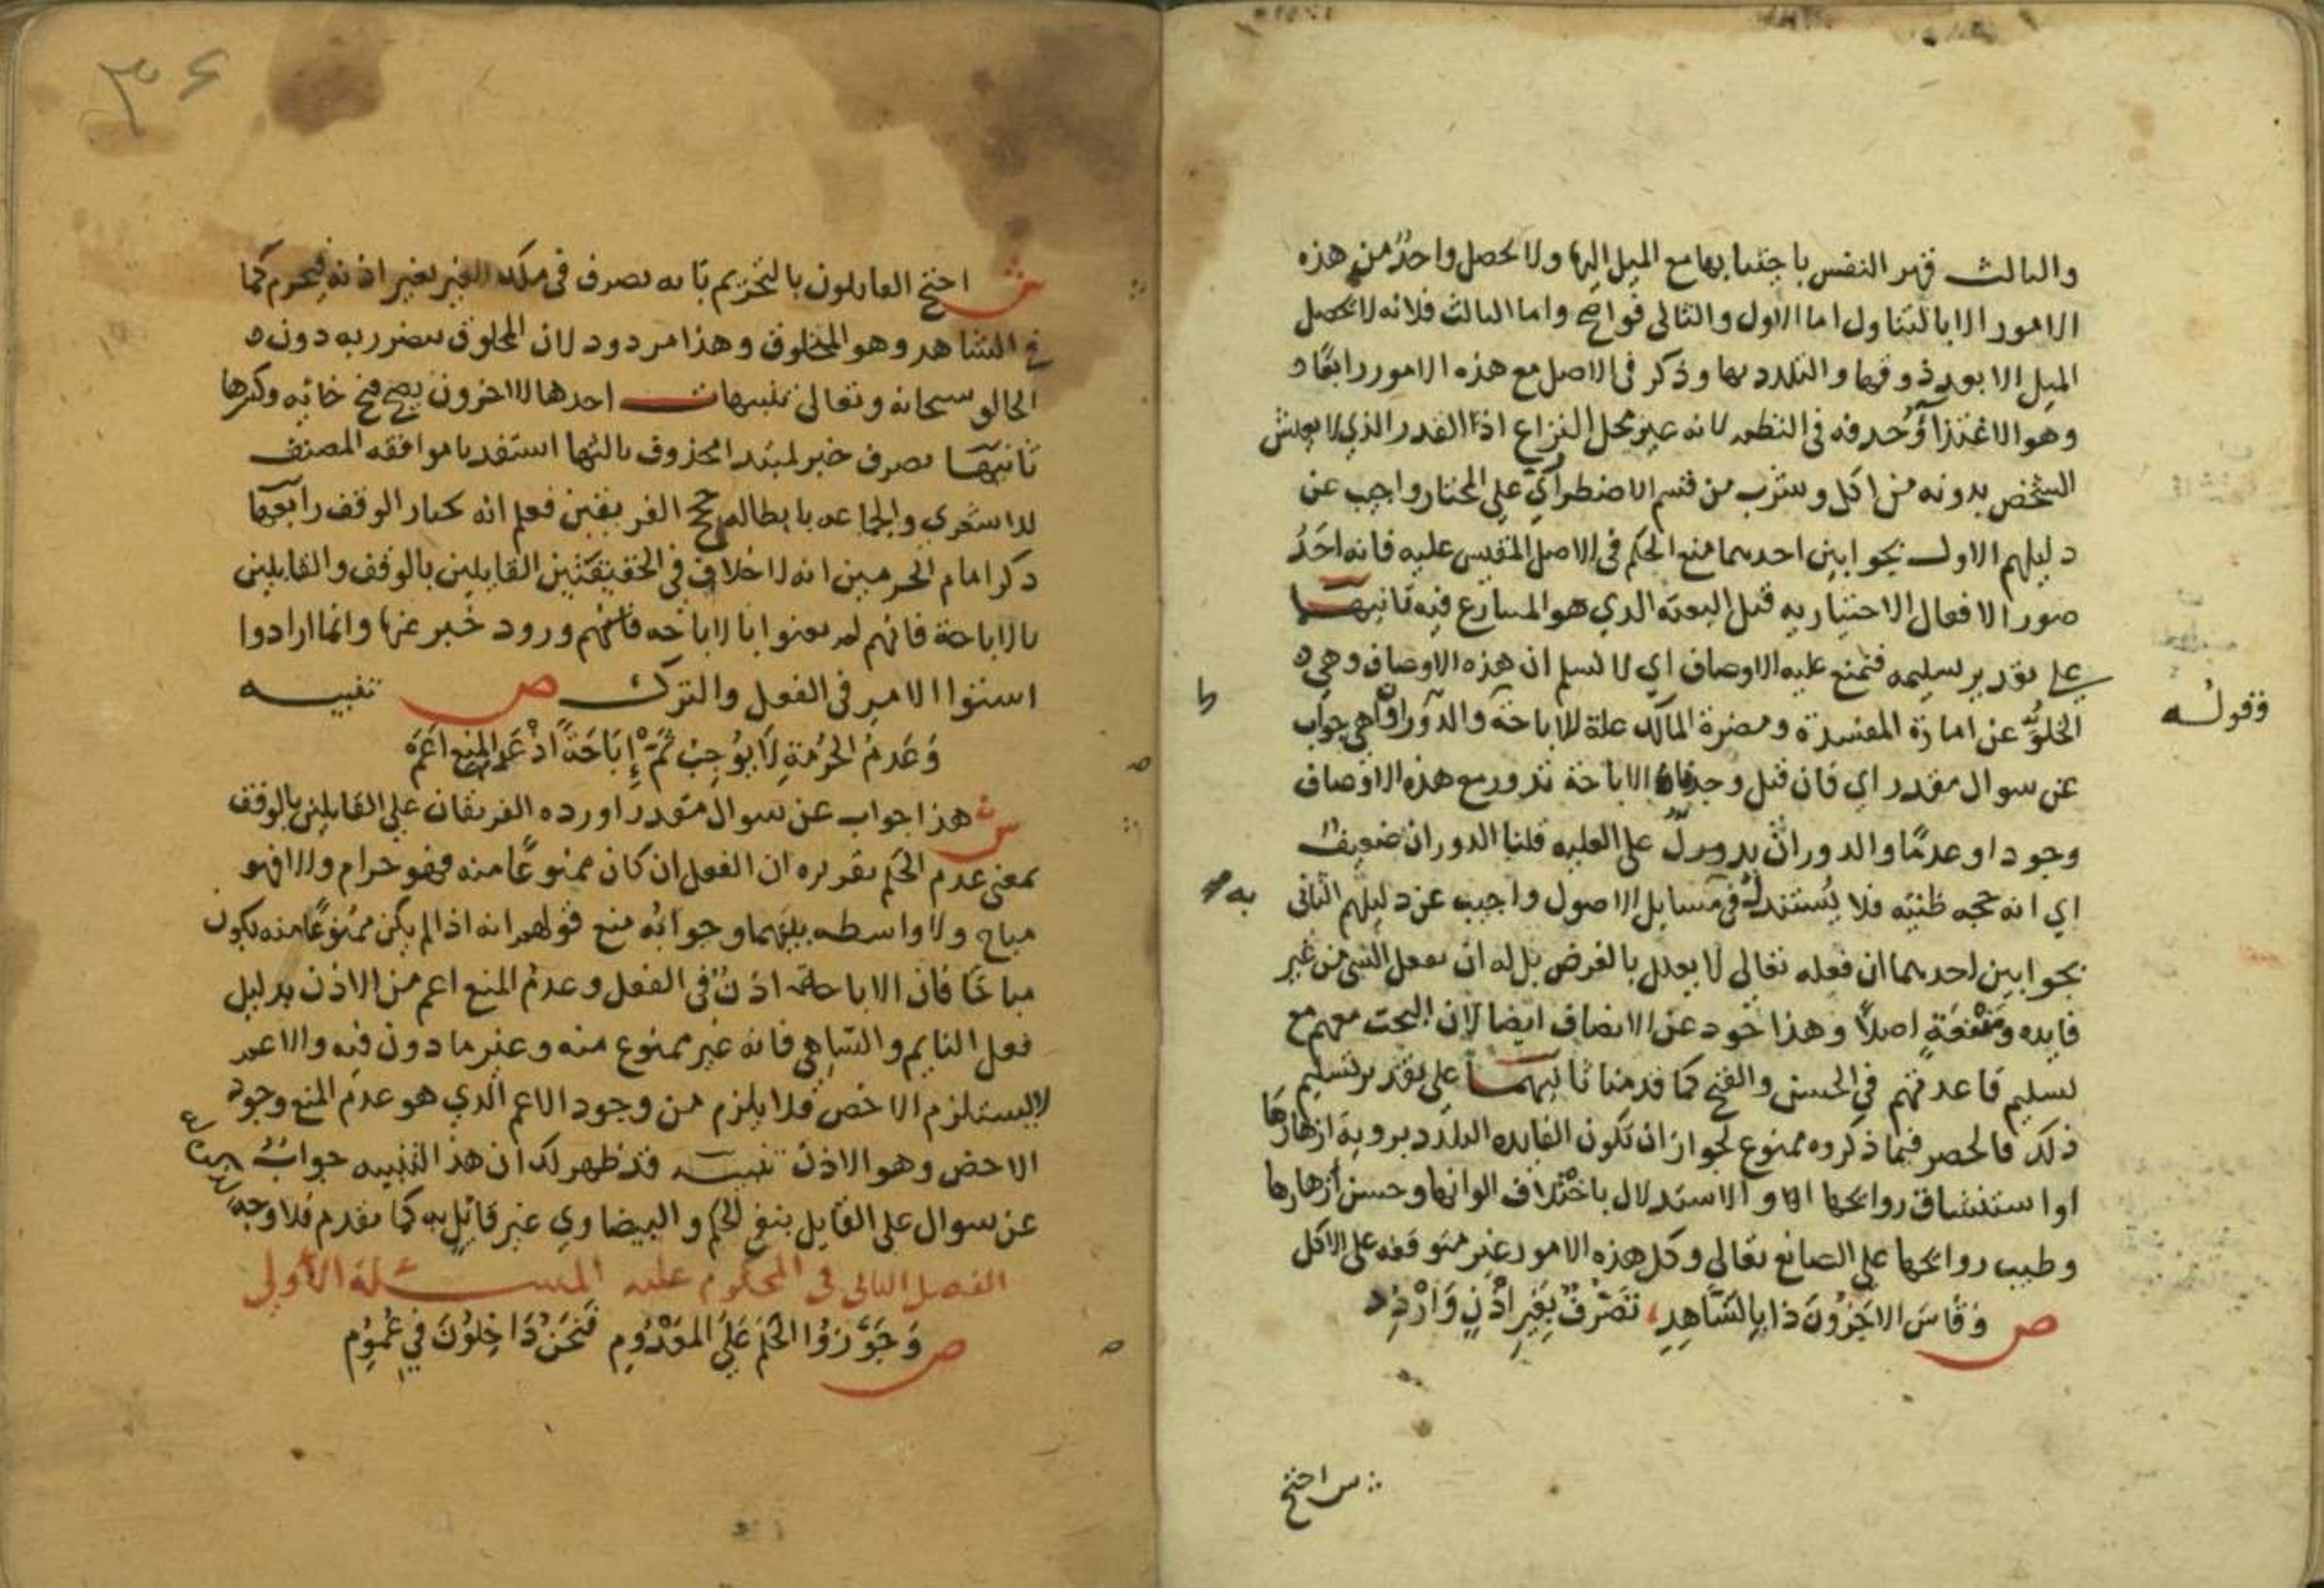 والثالث قهر النفس باجتنابها مع الميل اليها ولا يحصل واحد من هذه
الامور الا بالتناول اما الاول والثاني فواضح واما الثالث فلانه لا يحصل
الميل الا بعد ذوقها والتلذد بها وذكر في الاصل مع هذه الامور رابعا
وهو الاغتذاء وحدفه في النظم لانه غير محل النزاع اذ القدر الذي لا يعيش
الشخص بدونه من اكل وشرب من قسم الاضطراري على المختار واجيب عن
دليلهم الاول بجوابين احدهما منع الحكم في الاصل المقيس عليه فانه احد
صور الافعال الاختياريه قبل البعثه الدي هو المتنازع فيه ثانيهما
على تقدير تسليمه فنمنع عليه الاوصاف اي لا نسلم ان هذه الاوصاف وهي
فقوله
الخلو عن امارة المفسدة ومضرة المالك علة للاباحة والدوران هي جواب
عن سوال مقدر اي فان قيل وجدنا الاباحة تدور مع هذه الاوصاف
وجودا وعدما والدوران يدل على العليه قلنا الدوران ضعيف
اي انه حجه ظنيه فلا يستند له في مسايل الاصول واجيب عن دليلهم الثاني
بجوابين احدهما ان فعله تعالى لا يعلل بالغرض بل له ان يفعل الشي من غير
فايده ومنفعة اصلا وهذا خود عن الانصاف ايضا لان البحث معهم مع
تسليم قاعدتهم في الحسن والقبح كما قدمنا ثانيهما على تقدير تسليم
ذلك فالحصر فيما ذكروه ممنوع لجواز ان تكون الفايده التلدد بروية ازهارها
او استنشاق روايحها او الاستدلال باختلاف الوانها وحسن ازهارها
وطيب روايحها على الصانع تعالى وكل هذه الامور غير متوقفه على الاكل
ص وقاس الاخرون ذا بالشاهد تصرف بغير اذن واردد
ش احتج
٣٤
ش احتج القايلون بالتحريم بانه تصرف في ملك الغير بغير اذنه فيحرم كما
في الشاهد وهو المخلوق وهذا مردود لان المخلوق يتضرر به دون
الخالق سبحانه وتعالى تنبيهات احدها الاخرون يصح فتح خائه وكسرها
ثانيها تصرف خبر لمبتدا محذوف ثالثها استفد يا موافقه المصنف
للاشعري والجماعه بابطاله حجج الفريقين فعلم انه يختار الوقف رابعها
ذكر امام الحرمين انه لا خلاف في الحقيقة بين القايلين بالوقف والقايلين
بالاباحة فانهم لم يعنوا بالاباحه ورود خبر عنها وانما ارادوا
استوا الامر في الفعل والترك ص تنبيه
وعدم الحرمة لا يوجب ثم إباحة اذ عدم المنع اعم
ش هذا جواب عن سوال مقدر اورده الفريقان على القايلين بالوقف
بمعنى عدم الحكم تقريره ان الفعل ان كان ممنوعا منه فهو حرام والا فهو
مباح ولا واسطه بينهما وجوابه منع قولهم انه اذا لم يكن ممنوعا منه يكون
مباحا فان الاباحة اذن في الفعل وعدم المنع اعم من الاذن بدليل
فعل النايم والساهي فانه غير ممنوع منه وغير مادون فيه والاعم
لا يستلزم الاخص فلا يلزم من وجود الاعم الذي هو عدم المنع وجود
الاخص وهو الاذن تنبيه قد ظهر لك ان هذا التنبيه جواب
عن سوال على القايل بنفي الحكم والبيضاوي غير قائل به كما تقدم فلا وجه
الفصل الثاني في المحكوم عليه المسئلة الأولى
ص وجوزوا الحكم على المعدوم فنحن داخلون في عموم